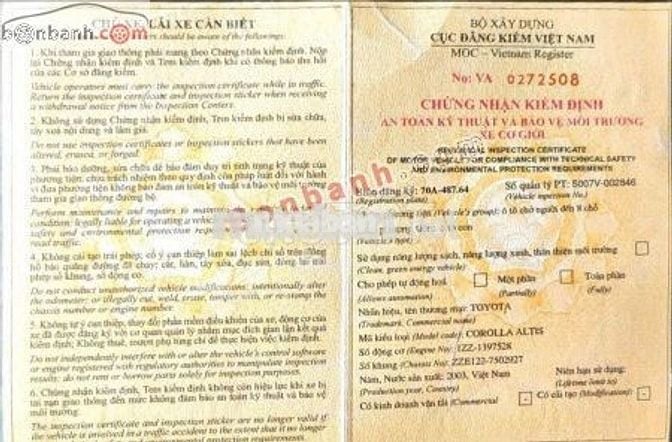 bonbanh.com
CHỦ XE, LÁI XE CẦN BIẾT
should be aware of the followings:
1. Khi tham gia giao thông phải mang theo Chứng nhận kiểm định. Nộp lại Chứng nhận kiểm định và Tem kiểm định khi có thông báo thu hồi của các Cơ sở đăng kiểm.
Vehicle operators must carry the inspection certificate while in traffic. Return the inspection certificate and inspection sticker when receiving a withdrawal notice from the Inspection Centers.
2. Không sử dụng Chứng nhận kiểm định, Tem kiểm định bị sửa chữa, tẩy xoá nội dung và làm giả.
Do not use inspection certificates or inspection stickers that have been altered, erased, or forged.
3. Phải bảo dưỡng, sửa chữa để bảo đảm duy trì tình trạng kỹ thuật của phương tiện; chịu trách nhiệm theo quy định của pháp luật đối với hành vi đưa phương tiện không bảo đảm an toàn kỹ thuật và bảo vệ môi trường tham gia giao thông đường bộ.
Perform maintenance and repairs to
condition; legally liable for operating a vehicle
safety and environmental protection
road traffic.
4. Không cải tạo trái phép; cố ý can thiệp làm sai lệch chỉ số trên đồng hồ báo quãng đường đã chạy; cắt, hàn, tẩy xóa, đục sửa, đóng lại trái phép số khung, số động cơ.
Do not conduct unauthorized vehicle modifications; intentionally alter the odometer; or illegally cut, weld, erase, tamper with, or re-stamp the chassis number or engine number.
5. Không tự ý can thiệp, thay đổi phần mềm điều khiển của xe, động cơ của xe đã được đăng ký với cơ quan quản lý nhằm mục đích gian lận kết quả kiểm định; Không thuê, mượn phụ tùng chỉ để thực hiện việc kiểm định.
Do not independently interfere with or alter the vehicle's control software or engine registered with regulatory authorities to manipulate inspection results; do not rent or borrow parts solely for inspection purposes.
6. Chứng nhận kiểm định, Tem kiểm định không còn hiệu lực khi xe bị tai nạn giao thông đến mức không đảm bảo an toàn kỹ thuật và bảo vệ môi trường.
The inspection certificate and inspection sticker are no longer valid if the vehicle is involved in a traffic accident to the extent that it no longer
environmental protection requirements.
BỘ XÂY DỰNG
CỤC ĐĂNG KIỂM VIỆT NAM
MOC - Vietnam Register
No: VA 0272508
CHỨNG NHẬN KIỂM ĐỊNH
AN TOÀN KỸ THUẬT VÀ BẢO VỆ MÔI TRƯỜNG
XE CƠ GIỚI
PERIODICAL INSPECTION CERTIFICATE
OF MOTOR VEHICLE FOR COMPLIANCE WITH TECHNICAL SAFETY
AND ENVIRONMENTAL PROTECTION REQUIREMENTS
Biển đăng ký: 70A-487.64 Số quản lý PT: 5007V-002846
(Registration plate) (Vehicle inspection No.)
(Vehicle's group): ô tô chở người đến 8 chỗ
con
(Vehicle's type)
Sử dụng năng lượng sạch, năng lượng xanh, thân thiện môi trường
(Clean, green energy vehicle)
Cho phép tự động hoá Một phần Toàn phần
(Allows automation) (Partially) (Fully)
Nhãn hiệu, tên thương mại: TOYOTA
(Trademark, Commercial name)
Mã kiểu loại (Model code): COROLLA ALTIS
Số động cơ (Engine No): 1ZZ-1397528
Số khung (Chassis No): ZZE122-7502927
Năm, Nước sản xuất: 2003, Việt Nam Niên hạn sử dụng:
(Production year, Country) (Lifetime limit to)
Có kinh doanh vận tải (Commercial - Có cải tạo (Modification): -